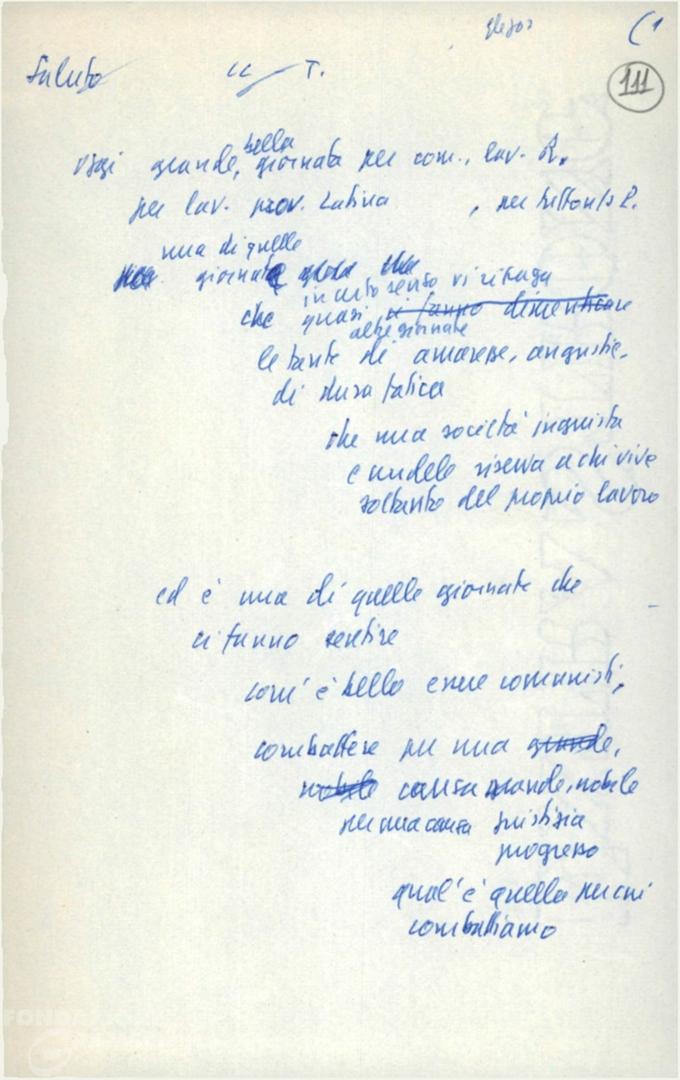 (1
111
Saluto cc T.
oggi grande, bella giornata per com., lav. R.
per lav. prov. Latina , per tutto il P.
una di quelle
giornate
in certo senso vi ripaga
che quasi ci fanno dimenticare
altre giornate
le tante di amarezze, angustie,
di dura fatica
che una società ingiusta
e crudele riserva a chi vive
soltanto del proprio lavoro
ed è una di quelle giornate che
ci fanno sentire
com'è bello essere comunisti,
combattere per una grande,
nobile causa grande, nobile
per una causa giustizia
progresso
qual'è quella per cui
combattiamo
FONDAZIONE